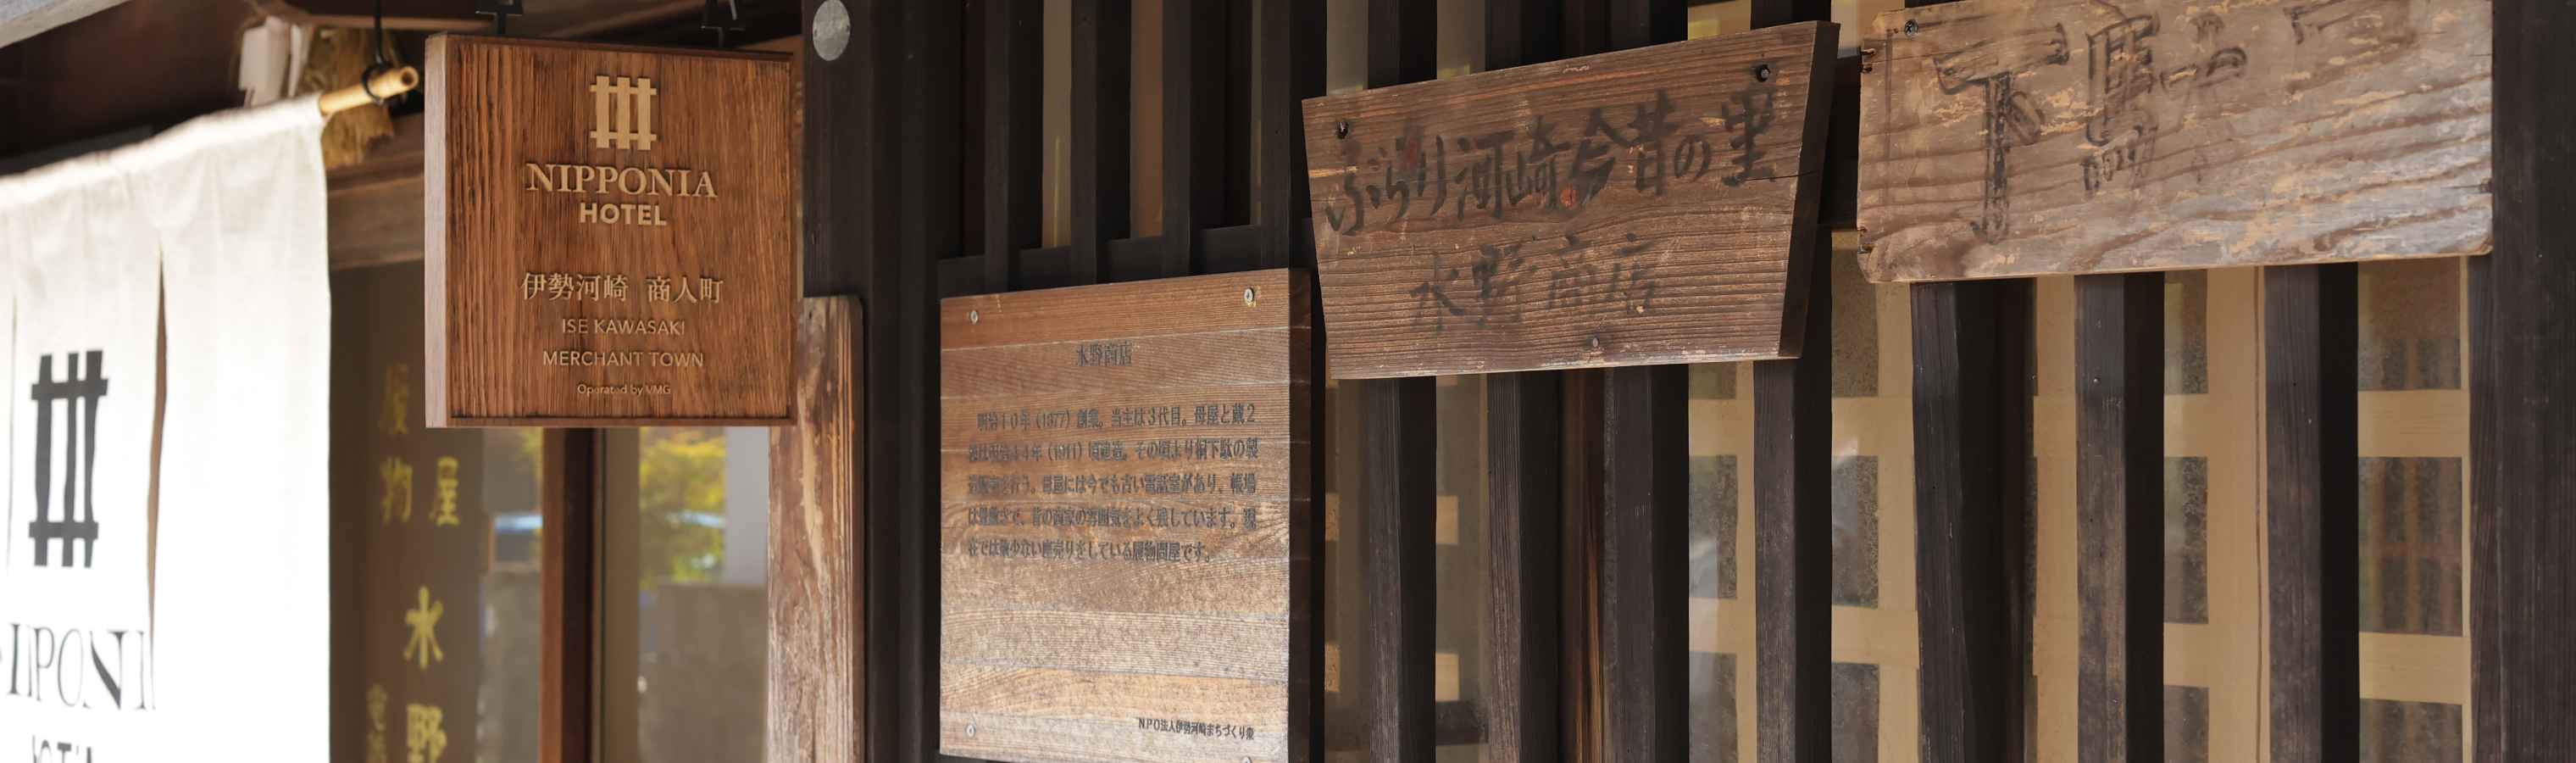 NIPPONIA
HOTEL
伊勢河崎 商人町
ISE KAWASAKI
MERCHANT TOWN
Operated by VMG
履物
屋
水野
水野商店
明治10年（1877）創業。当主は3代目。母屋と蔵2
棟は明治44年（1911）頃建造。その頃より桐下駄の製
造販売を行う。母屋には今でも古い電話室があり、帳場
は畳敷きで、昔の商家の雰囲気をよく残しています。現
在では数少ない座売りをしている履物問屋です。
NPO法人伊勢河崎まちづくり衆
ぶらり河崎今昔の里
水野商店
下